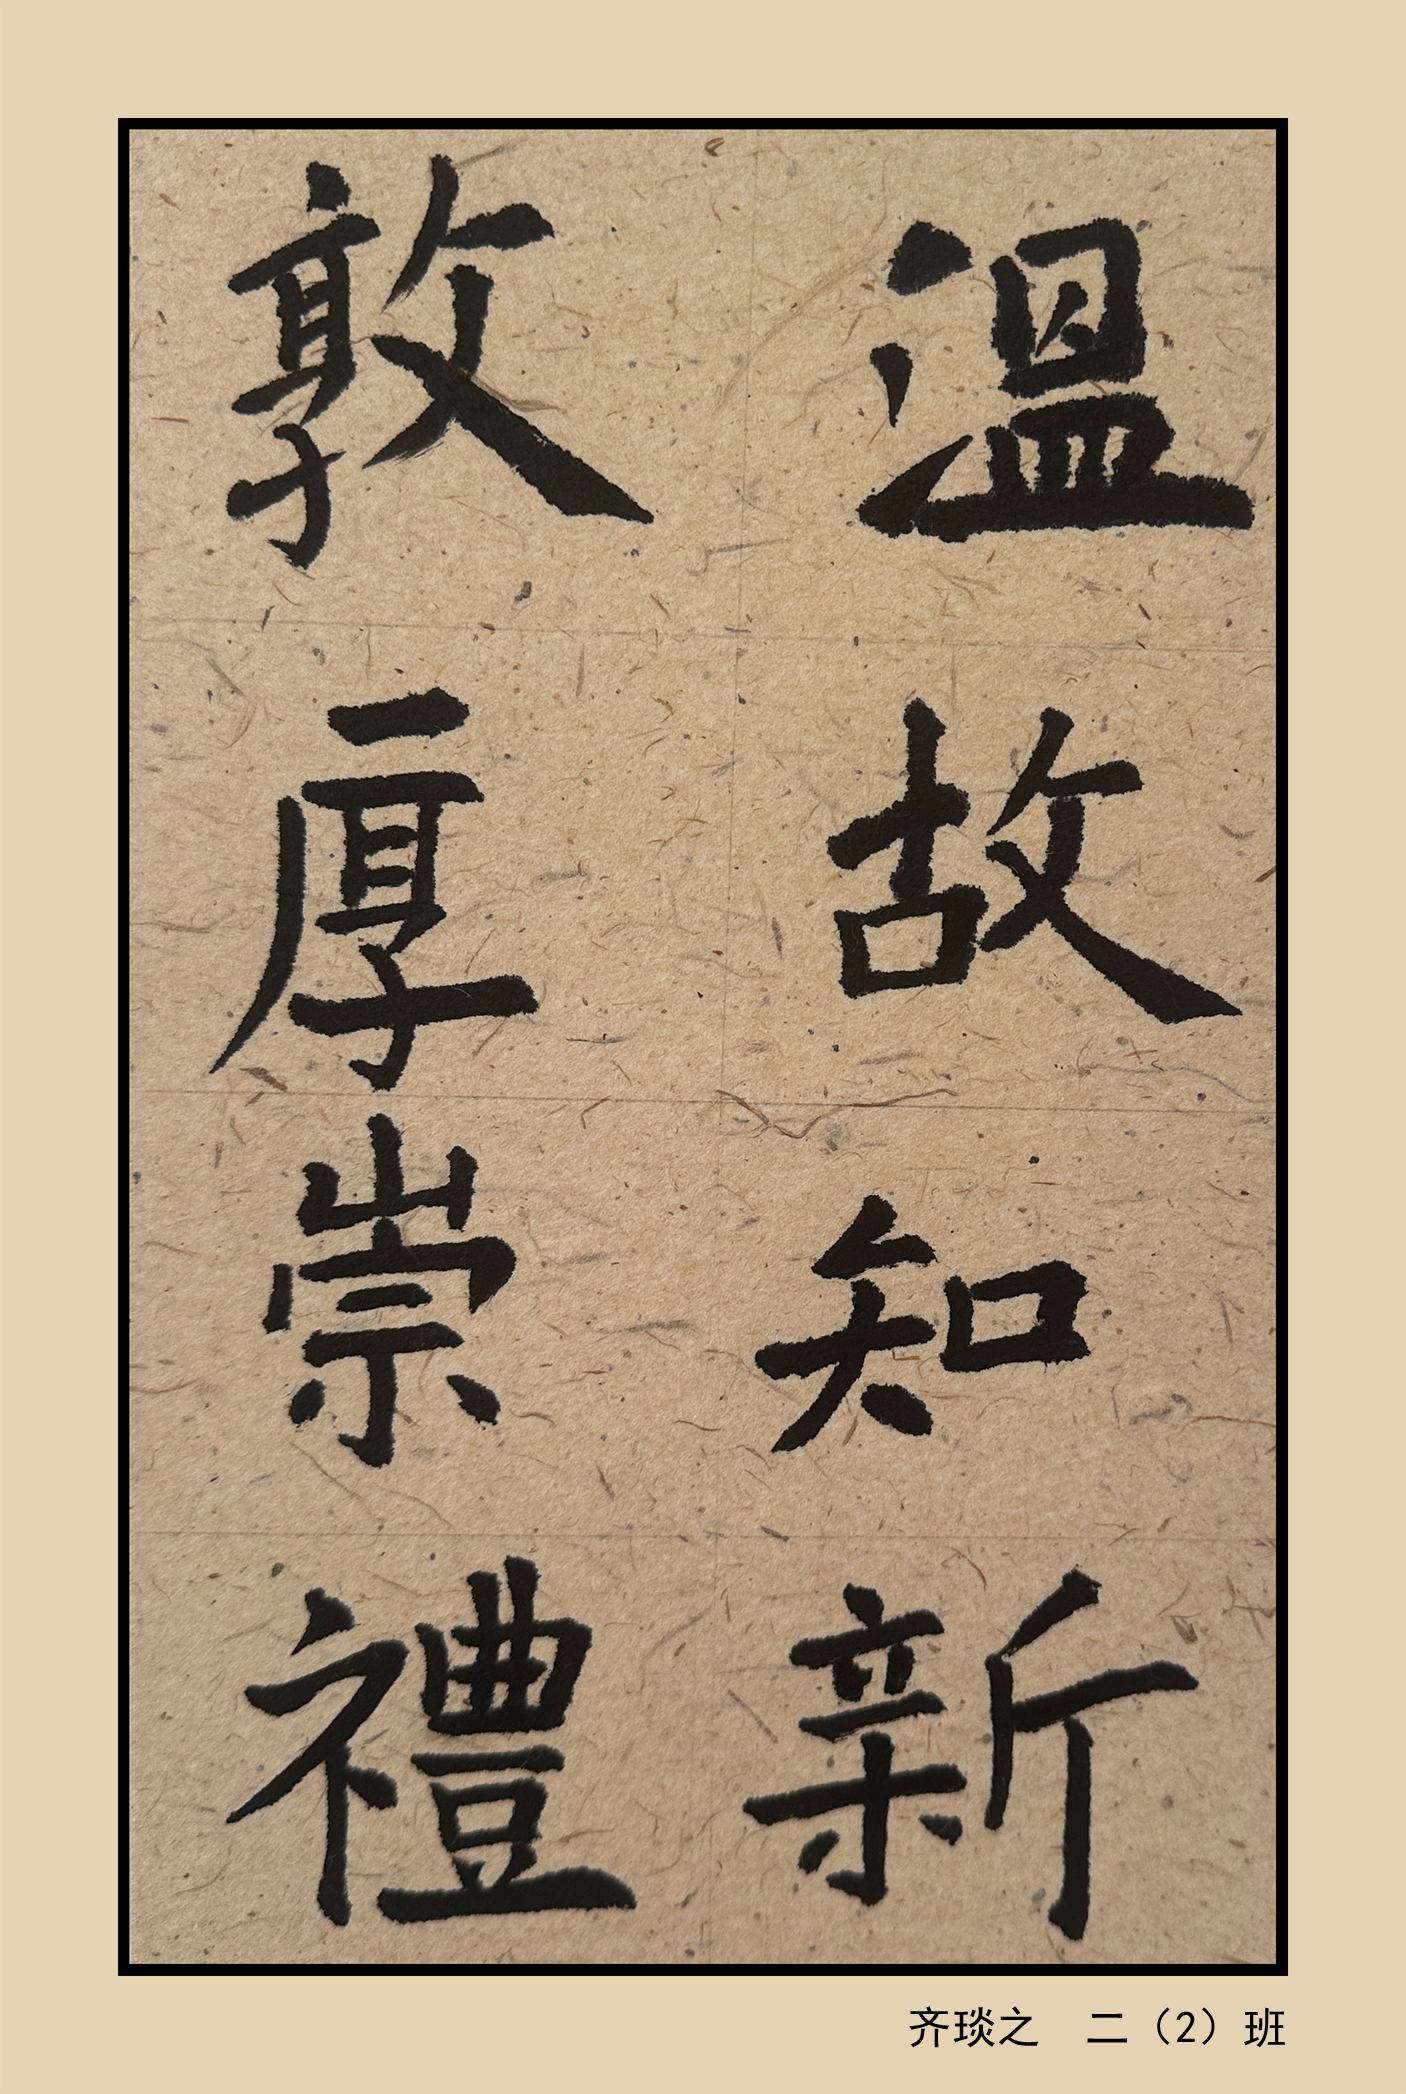 溫故知新
敦厚崇禮
齐琰之 二（2）班